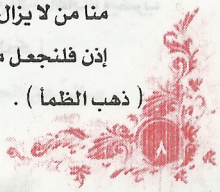 منا من لا يزال
إذن فلنجعل م
( ذهب الظمأ ) .
٨